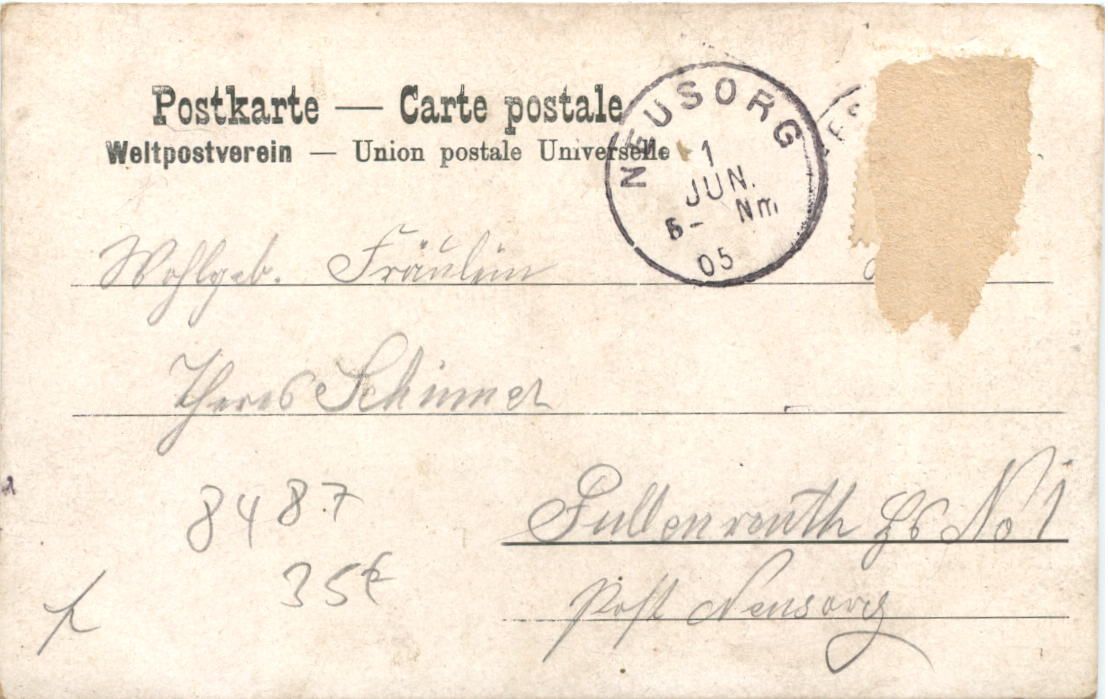 Postkarte — Carte postale
Weltpostverein — Union postale Universelle
NEUSORG
1
JUN.
5- Nm
05
Wohlgeb. Fräulein
Theres Schinner
Pullenreuth Hs No 1
Post Neusorg
8487
35€